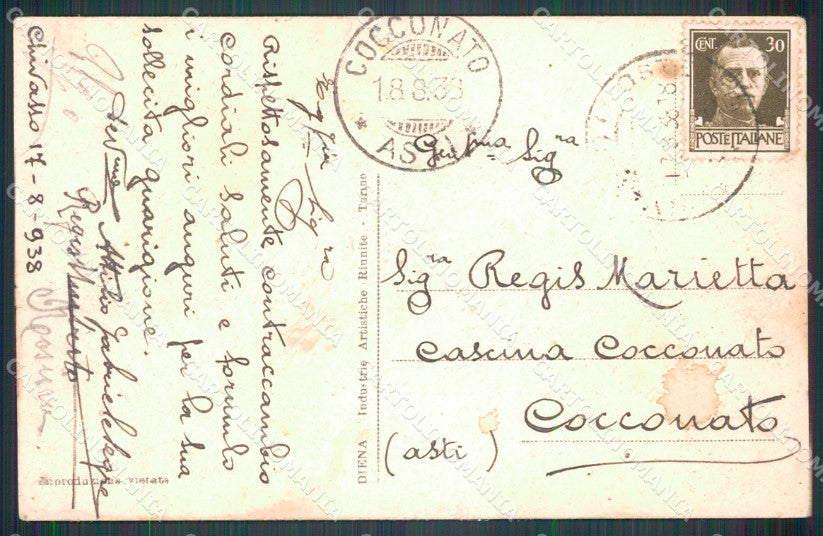 Eg/gia Sig.ra
Rispettosamente contraccambio
cordiali saluti e formulo
i migliori auguri per la sua
sollecita guarigione.
Dev/mo Attilio Gabriele
Regis
Chivasso 17-8-938
Riproduzione vietata
DIENA Industrie Artistiche Riunite - Torino
COCCONATO
18.8.38
* ASTI *
CENT. 30
POSTE ITALIANE
Sig.ra
Sig.ra Regis Marietta
Cascina Cocconato
Cocconato
(asti)
CARTOLINOMANIA